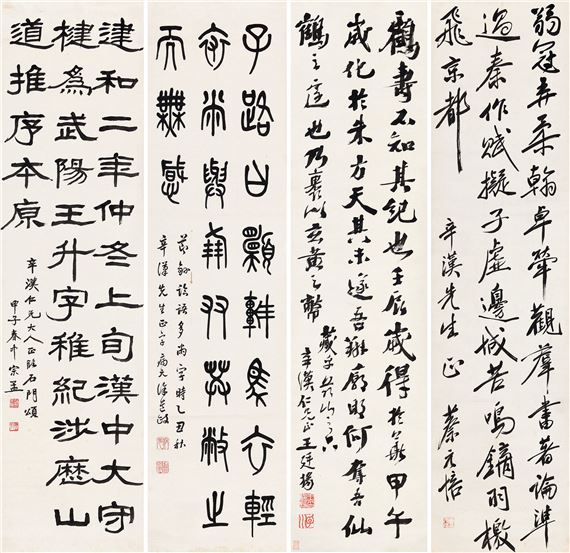 弱冠弄柔翰卓犖觀羣書著論準
過秦作賦擬子虛邊城苦鳴鏑羽檄
飛京都
辛漢先生正 蔡元培
鶴壽不知其紀也壬辰歲得於華甲午
歲化於朱方天其未遂吾翔廓耶何奪吾仙
鶴之遽也乃裹以玄黃之幣
藏乎茲山之下
辛漢仁兄正 王廷揚
子路曰願車馬衣輕
裘與朋友共敝之
而無憾
論語多兩字時乙丑秋
辛漢先生正字
建和二年仲冬上旬漢中大守
楗為武陽王升字稚紀涉歷山
道推序本原
辛漢仁兄大人正臨石門頌
甲子春 宗孟